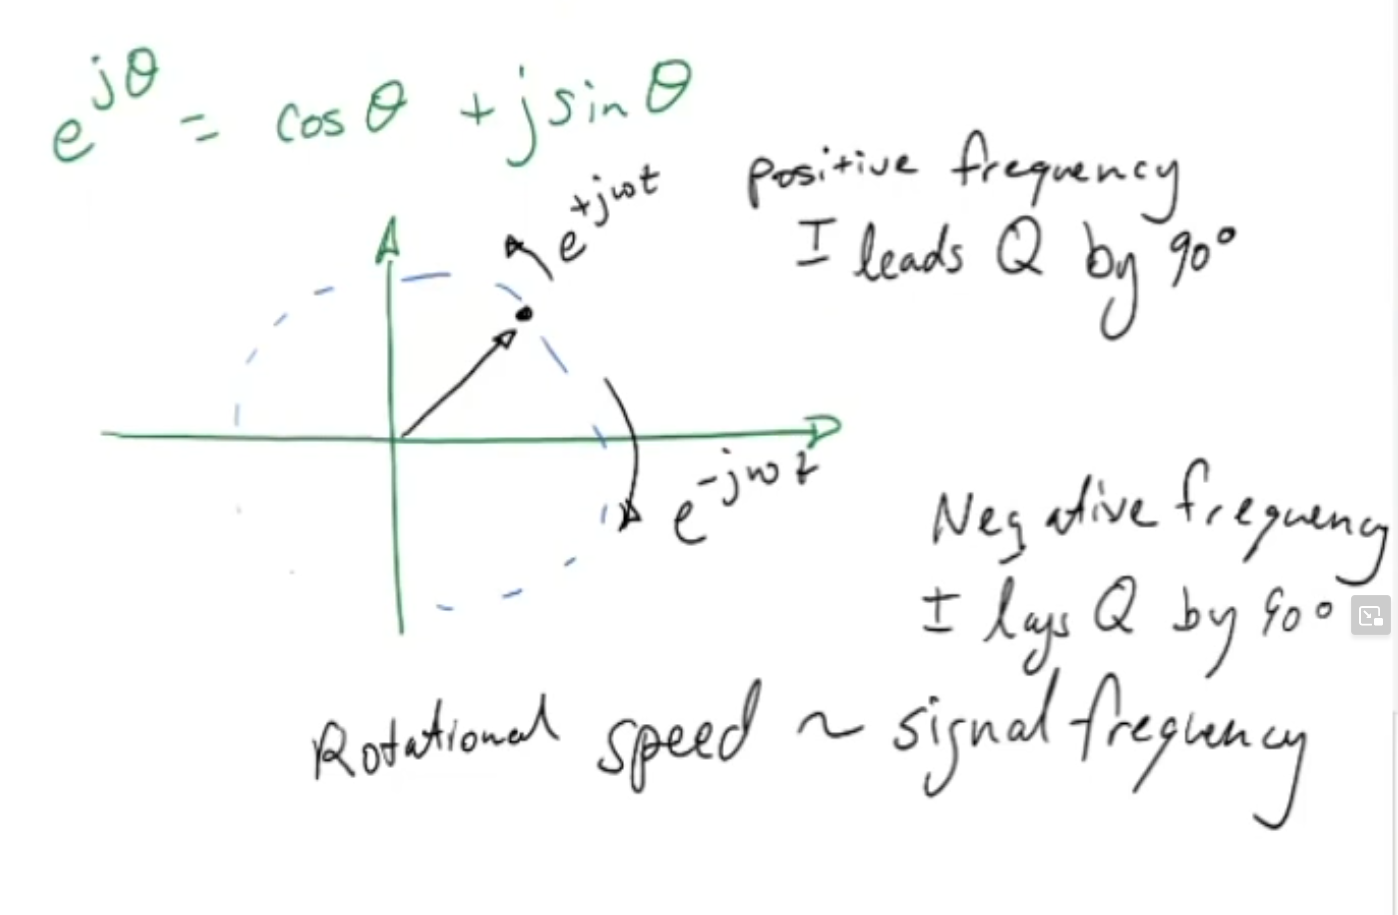 e^{jθ} = cos θ + j sin θ
e^{+jωt}
positive frequency
I leads Q by 90°
e^{-jωt}
Negative frequency
I lags Q by 90°
Rotational speed ~ signal frequency